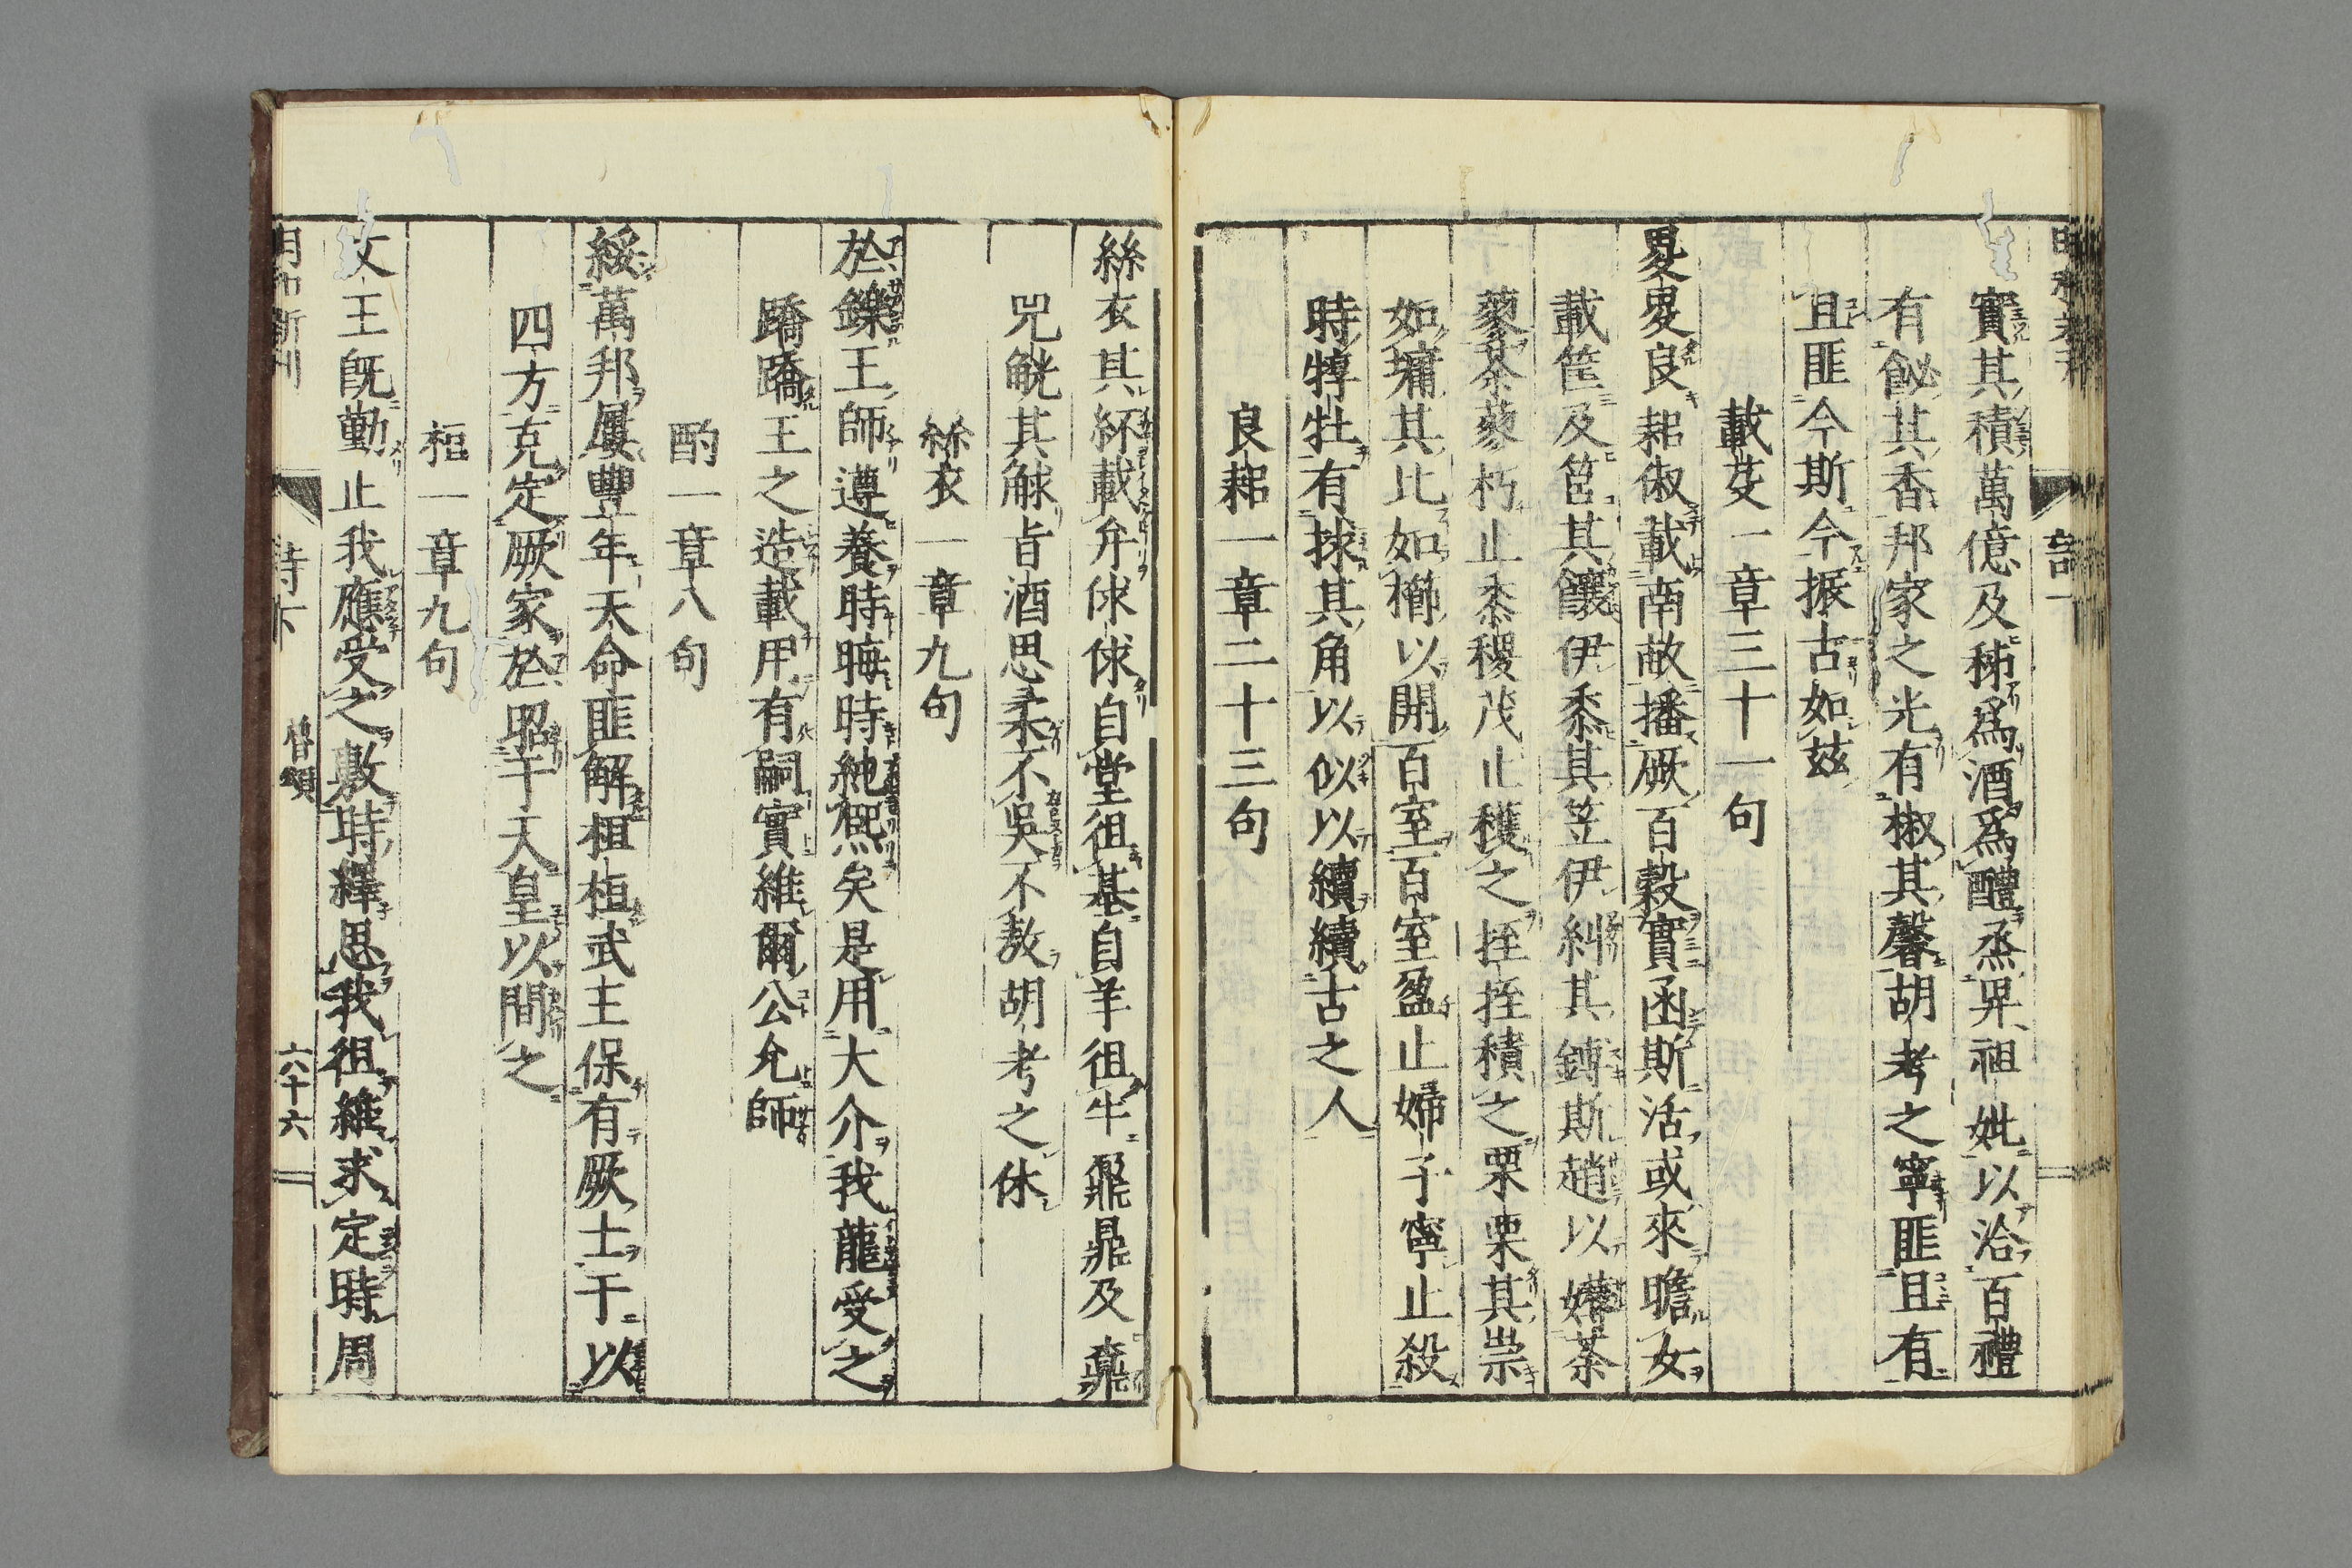 實其積萬億及秭爲酒爲醴烝畀祖妣以洽百禮
有飶其香邦家之光有椒其馨胡考之寧匪且有
且匪今斯今振古如茲
載芟一章三十一句
畟畟良耜俶載南畝播厥百穀實函斯活或來瞻女
載筐及筥其饟伊黍其笠伊糾其鎛斯趙以薅荼
蓼荼蓼朽止黍稷茂止穫之挃挃積之栗栗其崇
如墉其比如櫛以開百室百室盈止婦子寧止殺
時犉牡有捄其角以似以續續古之人
良耜一章二十三句
絲衣其紑載弁俅俅自堂徂基自羊徂牛鼐鼎及鼒
兕觥其觩旨酒思柔不吳不敖胡考之休
絲衣一章九句
於鑠王師遵養時晦時純熙矣是用大介我龍受之
蹻蹻王之造載用有嗣實維爾公允師
酌一章八句
綏萬邦屢豐年天命匪解桓桓武王保有厥士于以
四方克定厥家於昭于天皇以間之
桓一章九句
文王旣勤止我應受之敷時繹思我徂維求定時周
詩下 周頌 六十六